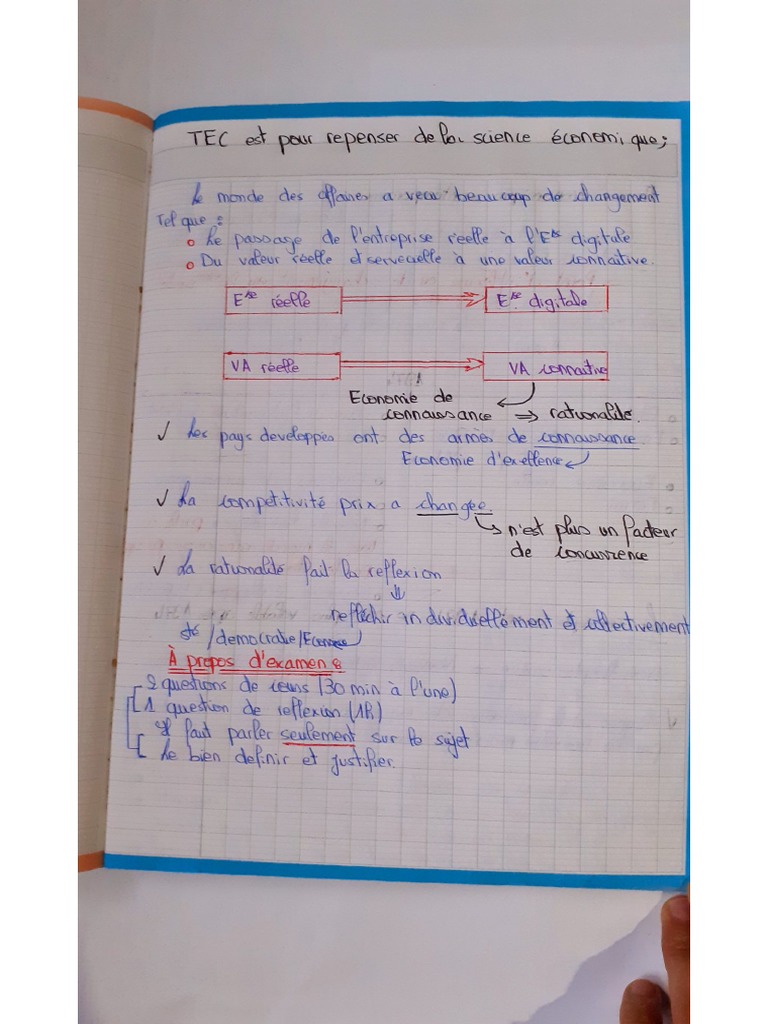 TEC est pour repenser de la science économique;
Le monde des affaires a vecu beaucoup de changement
Tel que :
Le passage de l'entreprise réelle à l'Ese digitale
Du valeur réelle et servecielle à une valeur connaitive.
Ese réelle
Ese digitale
VA réelle
VA connaitive
Economie de connaissance => rationalité.
✓ Les pays developpés ont des armés de connaissance
Economie d'exellence
✓ La competitivité prix a changée.
n'est plus un facteur
de concurrence
✓ La rationalité fait la reflexion
reflechir individuellement et collectivement
sté/democratie/Economie
À propos d'examen :
2 questions de cours (30 min à l'une)
1 question de reflexion (1h)
Il faut parler seulement sur le sujet
Le bien definir et justifier.